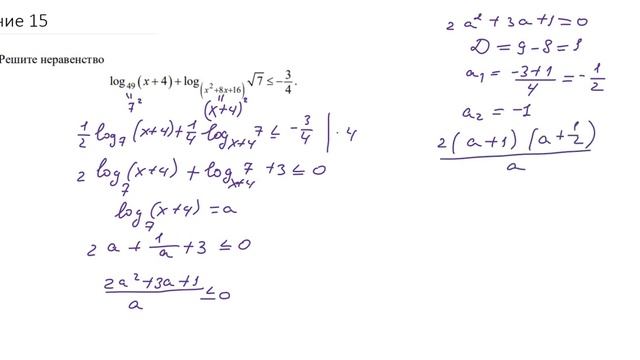 ние 15
Решите неравенство
log₄₉(x+4) + log₍ₓ²₊₈ₓ₊₁₆₎ √7 ≤ -3/4.
7²
(x+4)²
1/2 log₇(x+4) + 1/4 log_{x+4} 7 ≤ -3/4 | · 4
2 log₇(x+4) + log_{x+4} 7 + 3 ≤ 0
log₇(x+4) = a
2a + 1/a + 3 ≤ 0
(2a² + 3a + 1)/a ≤ 0
2a² + 3a + 1 = 0
D = 9 - 8 = 1
a₁ = (-3+1)/4 = -1/2
a₂ = -1
2(a+1)(a+1/2)/a